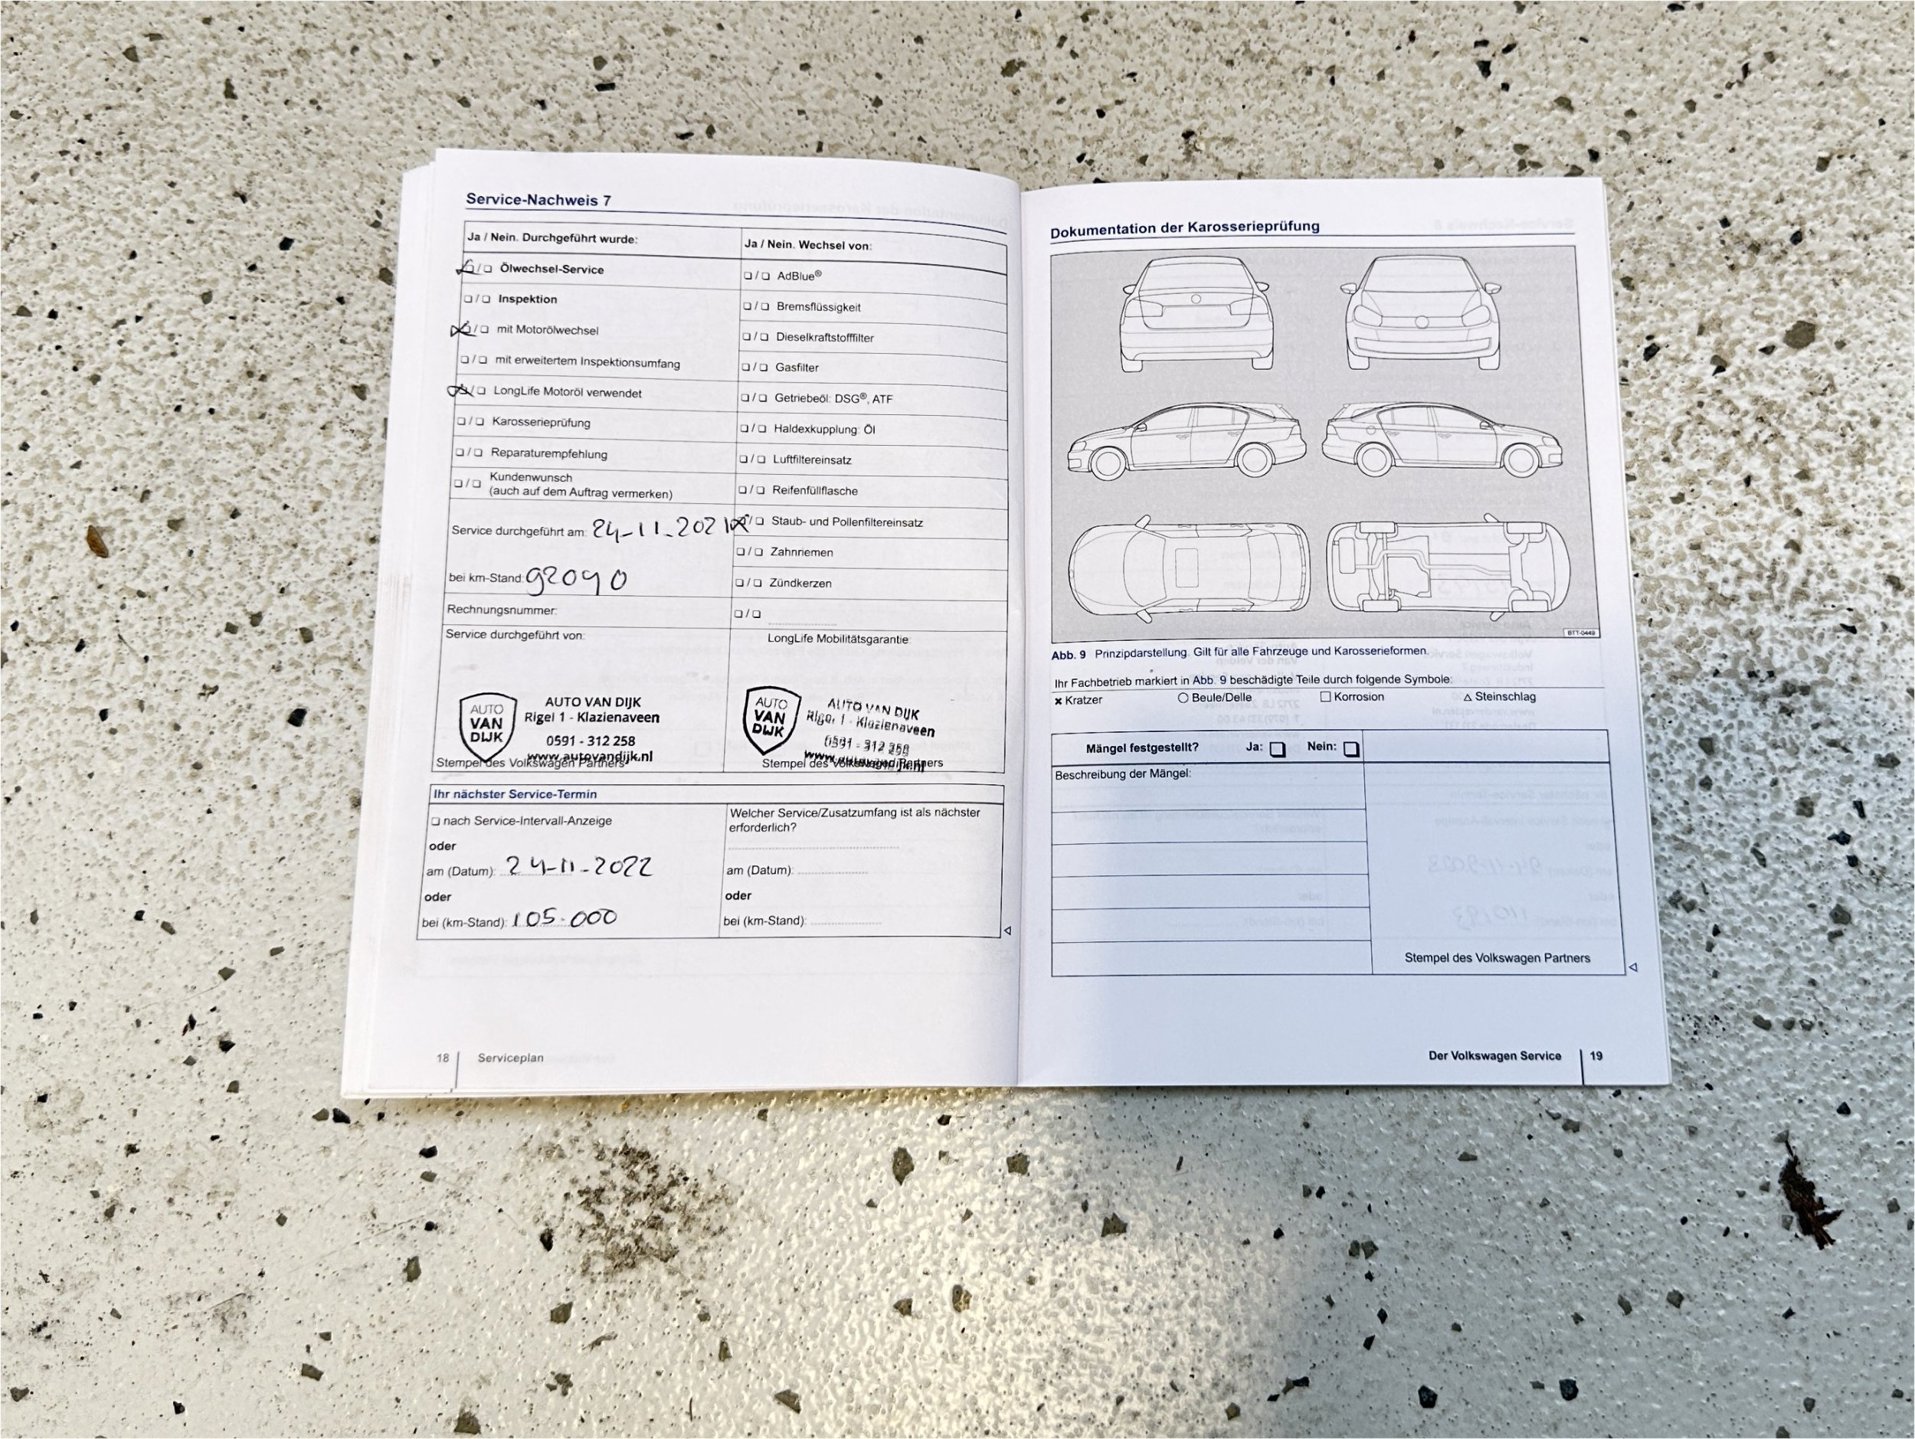 Service-Nachweis 7
Ja / Nein. Durchgeführt wurde:
❏ / ❏ Ölwechsel-Service
❏ / ❏ Inspektion
❏ / ❏ mit Motorölwechsel
❏ / ❏ mit erweitertem Inspektionsumfang
❏ / ❏ LongLife Motoröl verwendet
❏ / ❏ Karosserieprüfung
❏ / ❏ Reparaturempfehlung
❏ / ❏ Kundenwunsch
(auch auf dem Auftrag vermerken)
Service durchgeführt am: 24-11-2021
bei km-Stand: 92090
Rechnungsnummer:
Service durchgeführt von:
AUTO VAN DIJK
AUTO VAN DIJK
Rigel 1 - Klazienaveen
0591 - 312 258
www.autovandijk.nl
Stempel des Volkswagen Partners
Ja / Nein. Wechsel von:
❏ / ❏ AdBlue®
❏ / ❏ Bremsflüssigkeit
❏ / ❏ Dieselkraftstofffilter
❏ / ❏ Gasfilter
❏ / ❏ Getriebeöl: DSG®, ATF
❏ / ❏ Haldexkupplung: Öl
❏ / ❏ Luftfiltereinsatz
❏ / ❏ Reifenfüllflasche
❏ / ❏ Staub- und Pollenfiltereinsatz
❏ / ❏ Zahnriemen
❏ / ❏ Zündkerzen
❏ / ❏
LongLife Mobilitätsgarantie:
AUTO VAN DIJK
AUTO VAN DIJK
Rigel 1 - Klazienaveen
0591 - 312 258
www.autovandijk.nl
Stempel des Volkswagen Partners
Ihr nächster Service-Termin
❏ nach Service-Intervall-Anzeige
oder
am (Datum): 24-11-2022
oder
bei (km-Stand): 105.000
Welcher Service/Zusatzumfang ist als nächster
erforderlich?
am (Datum):
oder
bei (km-Stand):
18 Serviceplan
Dokumentation der Karosserieprüfung
BTT-0449
Abb. 9 Prinzipdarstellung. Gilt für alle Fahrzeuge und Karosserieformen.
Ihr Fachbetrieb markiert in Abb. 9 beschädigte Teile durch folgende Symbole:
× Kratzer ○ Beule/Delle □ Korrosion △ Steinschlag
Mängel festgestellt? Ja: ❏ Nein: ❏
Beschreibung der Mängel:
Stempel des Volkswagen Partners
Der Volkswagen Service 19